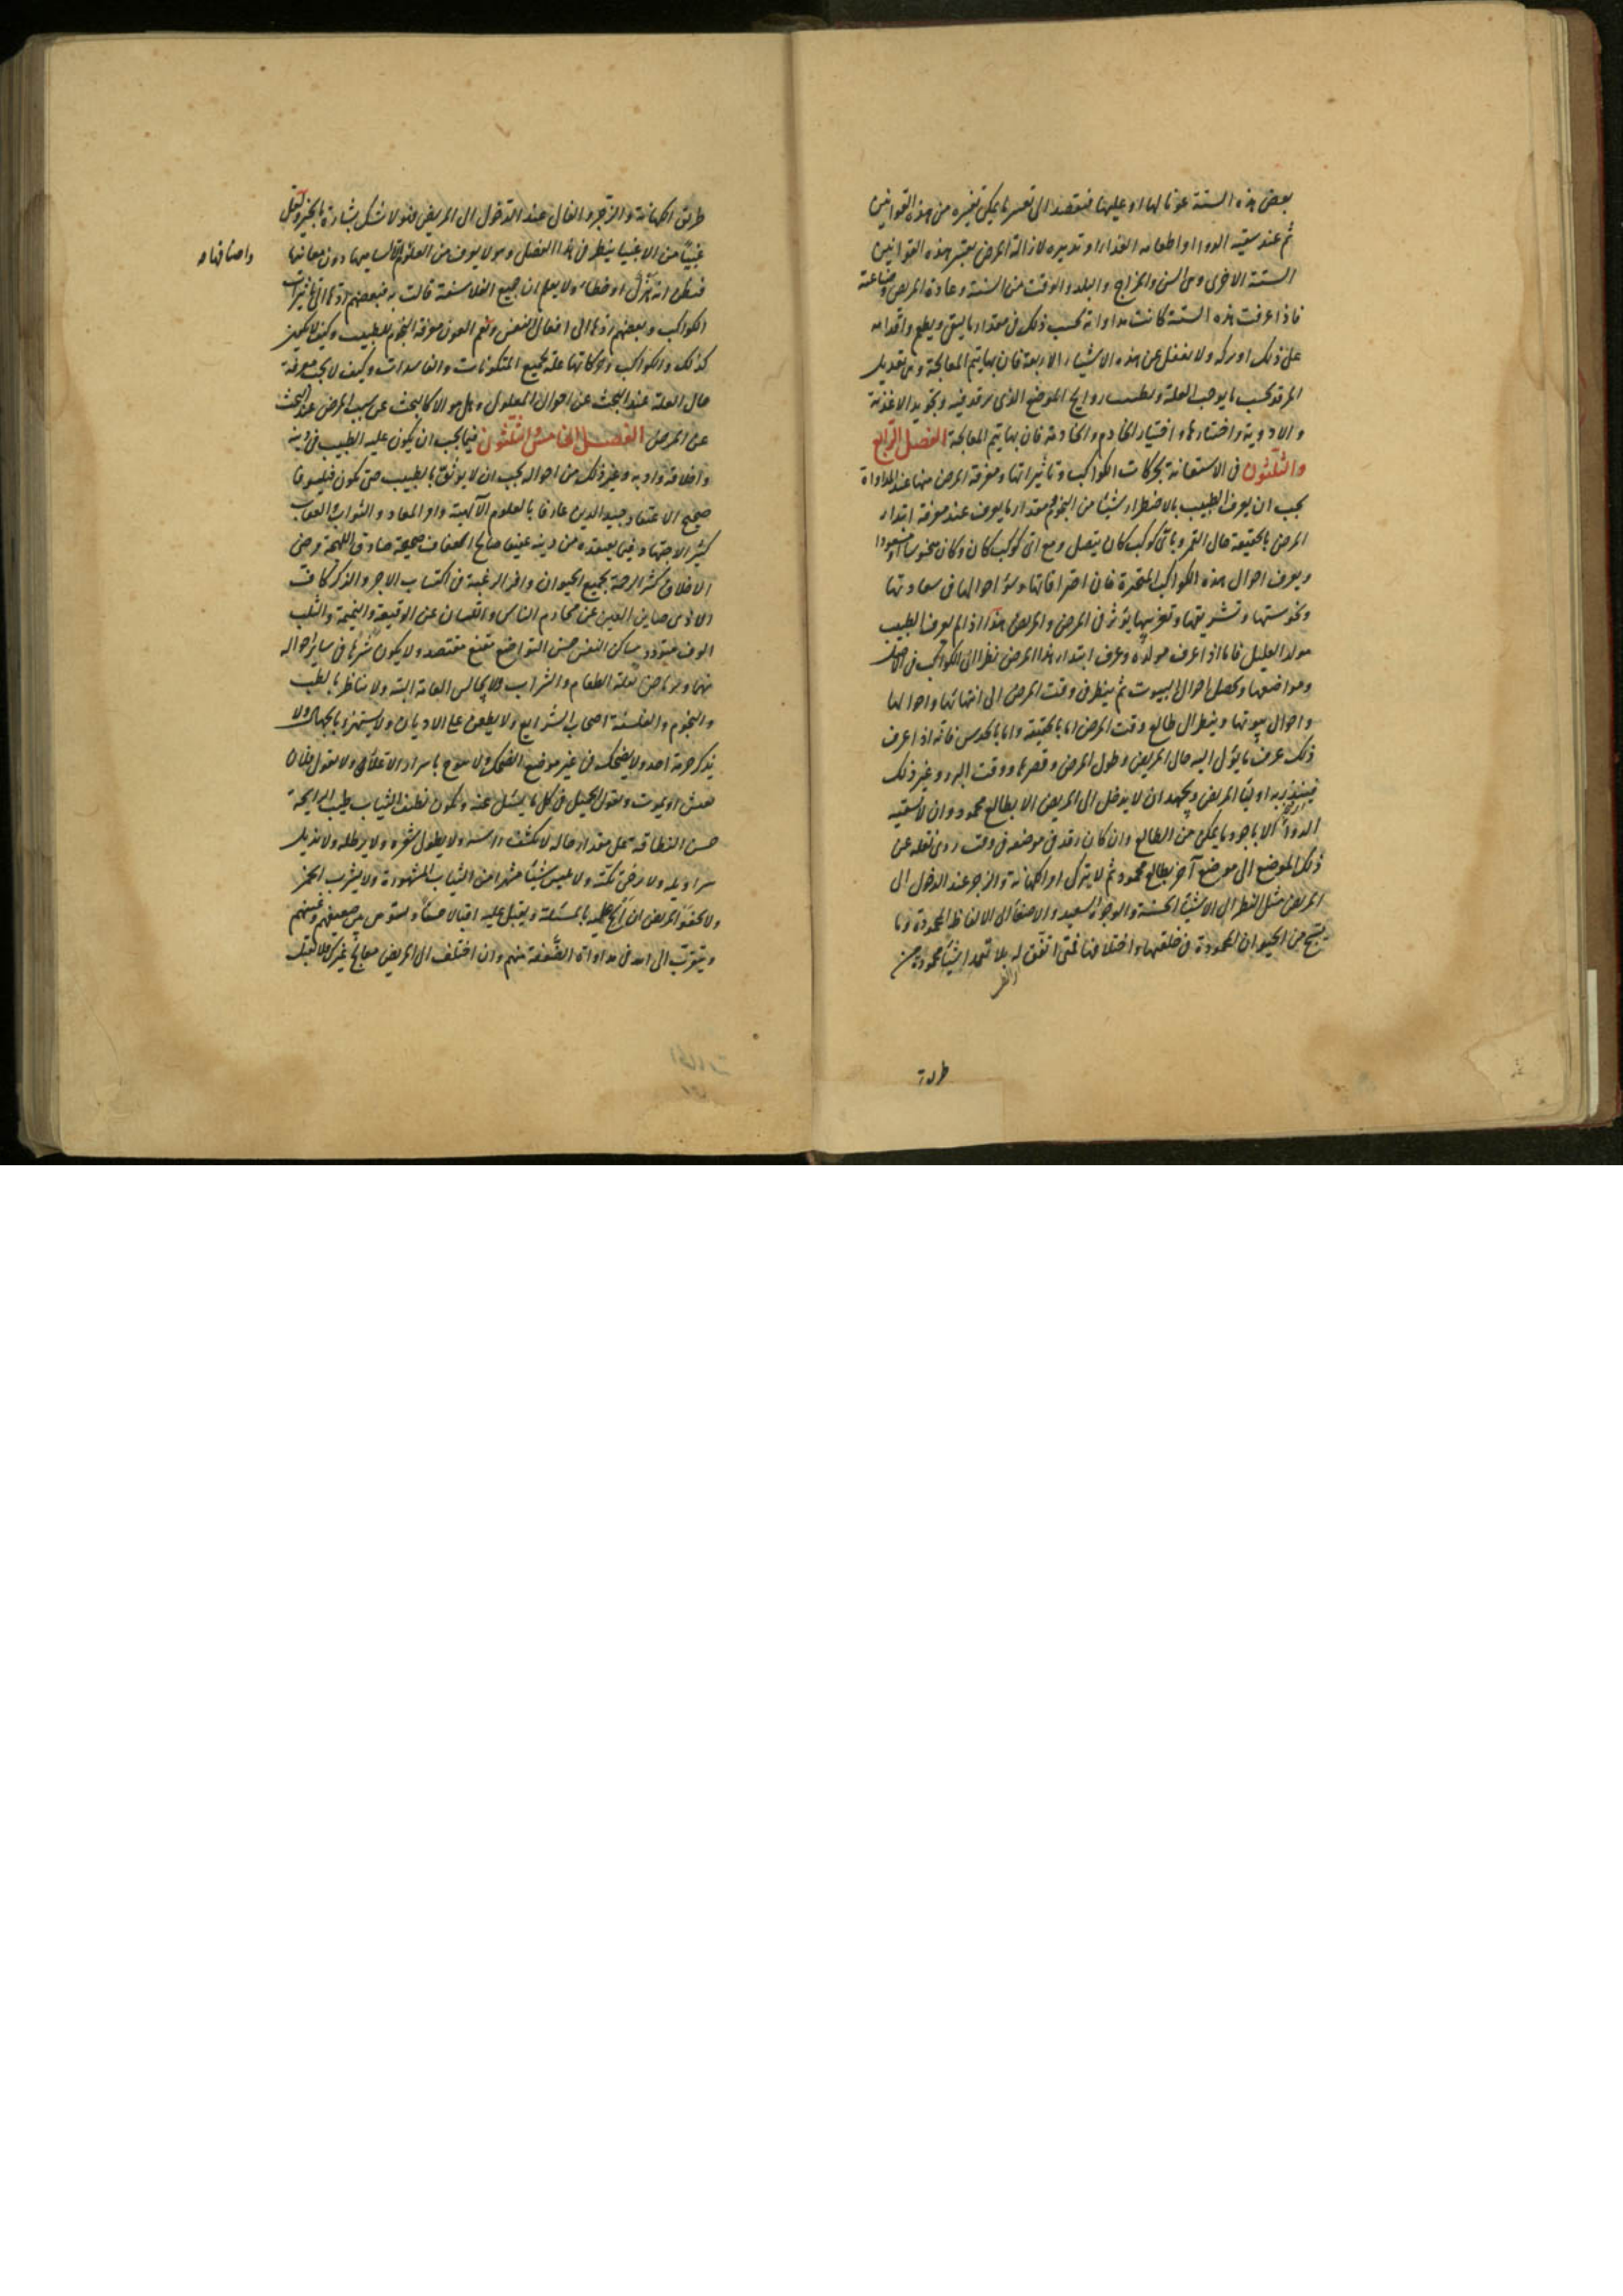 بعض هذه الستة عونا لها او عليها فيقصد الى تغيير ما يمكن تغييره من هذه القوانين
ثم عند سقيه الدواء او اطعامه الغذاء او تدبيره لازالة المرض يعتبر هذه القوانين
الستة الاخرى وهى السن والمزاج والبلد والوقت من السنة وعادة المريض وصناعته
فاذا عرفت هذه الستة كانت مداواته بحسب ذلك فى مقدار ما يسقى ويطعم واقدامه
على ذلك او تركه ولا يغفل عن هذه الاشياء الاربعة فان بها يتم المعالجة وهى تعديل
المرقد بحسب ما يوجب العلة وتطييب روايح الموضع الذى يرقد فيه وتجويد الاغذية
والادوية واختيارها واختيار الخادم والخادمة فان بها يتم المعالجة الفصل الرابع
والثلثون فى الاستعانة بحركات الكواكب وتاثيراتها ومعرفة المرض منها عند المداواة
يجب ان يعرف الطبيب بالاضطرار شيئا من النجوم مقدار ما يعرف عند معرفة ابتداء
المرض بالحقيقة حال القمر وباى كوكب كان يتصل ومع اى كوكب كان وكان منحوسا او مسعودا
ويعرف احوال هذه الكواكب المتحيرة فان احتراقاتها وسؤ احوالها فى سعادتها
ونحوستها وتشريقها وتغريبها يؤثر فى المرض والمريض هذا اذا لم يعرف الطبيب
مولد العليل فاما اذا عرف مولده وعرف ابتداء هذا المرض نظر الى الكواكب فى الاصل
ومواضعها وتحصل احوال البيوت ثم ينظر فى وقت المرض الى انتهائها واحوالها
واحوال بيوتها وينظر الى طالع وقت المرض اما بالحقيقة واما بالحدس فانه اذا عرف
ذلك عرف ما يؤل اليه حال المريض وطول المرض وقصره ووقت البرء وغير ذلك
فينذر به اولياء المريض ويجهد ان لا يدخل الى المريض الا بطالع محمود وان لا يسقيه
الدواء الا باجود ما يمكن من الطالع وان كان رقد فى موضعه فى وقت ردى نقله عن
ذلك الموضع الى موضع آخر بطالع محمود ثم لا يترك امر الكهانة والزجر عند الدخول الى
المريض مثل النظر الى الاشياء الحسنة والوجوه السعيد والاصغاء الى الالفاظ المحمودة وما
يسنح من الحيوان المحمودة فى خلقتها واختلافها فمتى اتفق له بلا تعمد اشياء محمودة من
طريق
طريق الكهانة والزجر والفال عند الدخول الى المريض فهو لا شك بشارة بالخير ولعل
غبيا من الاغبياء ينظر فى هذا الفصل وهو لا يعرف من العلوم الا اساميها دون معانيها
واصنافها
فيظن انه هزل او خطاء ولا يعلم ان جميع الفلاسفة قالت به فبعضهم ردها الى تاثيرات
الكواكب وبعضهم ردها الى افعال النفس ونعم العون معرفة النجوم للطبيب وكيف لا يكون
كذلك والكواكب وحركاتها علة لجميع المتكونات والفاسدات وكيف لا يجب معرفة
حال العلة عند البحث عن احوال المعلول وهل هو الا كالبحث عن سبب المرض عند البحث
عن المرض الفصل الخامس والثلثون فيما يجب ان يكون عليه الطبيب فى دينه
واخلاقه وادبه وغير ذلك من احواله يجب ان لا يوثق بالطبيب حتى يكون فيلسوفا
صحيح الاعتقاد جيد الدين عارفا بالعلوم الآلهية وامر المعاد والثواب والعقاب
كثير الاجتهاد فيما يعتقده من دينه عفيفا صالحا بعفاف صحيحة صادق اللهجة مرضى
الاخلاق كثير الرحمة بجميع الحيوان وافر الرغبة فى اكتساب الاجر والذكر كاف
الاذى صاين العين عن محارم الناس واللسان عن الوقيعة والنميمة والثلب
الوف متودد ساكن النفس حسن التواضع مقنع مقتصد ولا يكون شرها فى ساير احواله
بقلة الطعام والشراب ولا يجالس العامة البتة ولا يناظر بالطب
والنجوم والفلسفة اصحاب الشرايع ولا يطعن على الاديان ولا يستهزء بالجهال ولا
يذكر حرمة احد ولا يضحك فى غير موضع الضحك ولا ولا يقول فلان
يعيش او يموت ويقول الجميل فى كل ما يسئل عنه ويكون نظيف الثياب طيب الرايحة
حسن النظافة على مقدار حاله لا يكشف راسه ولا يطول شعره ولا يرطله ولا يذيل
سراويله ولا يرخى تكته ولا يلبس شيئا مشهرا من الثياب المشهورة ولا يشرب الخمر
ولا يجفو المريض ان الح عليه بالمسئلة ويقبل عليه اقبالا حسنا ويستوى بين ضعيفهم وغنيهم
ويتقرب الى الله فى مداواة الضعفة منهم وان اختلف الى المريض معالج غيره فلا يقبل